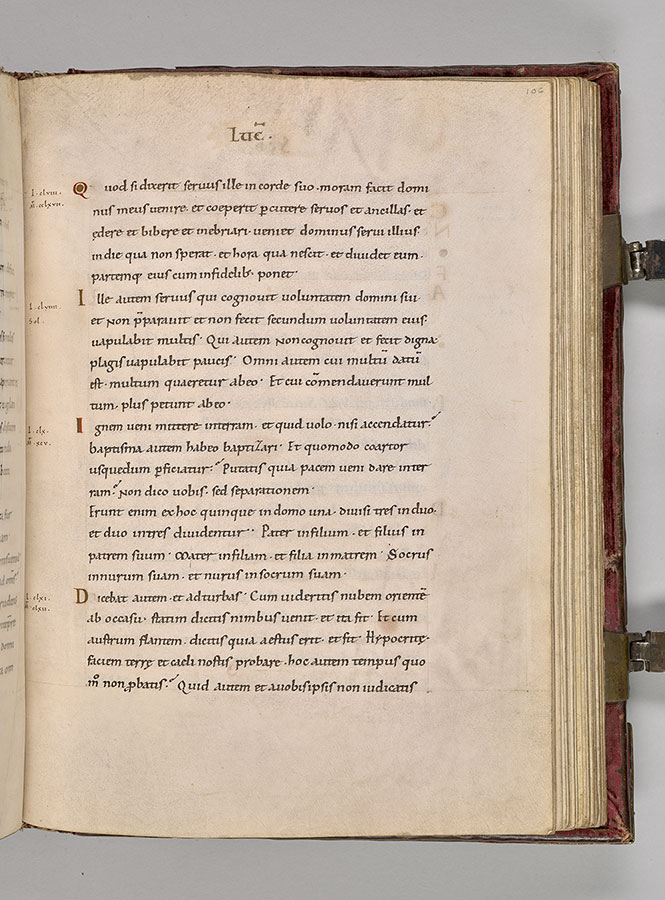 106
LUC̄.
Quod si dixerit servus ille in corde suo · moram facit domi
nus meus venire · et coeperit p̲cutere servos et ancillas · et
ędere et bibere et inebriari · veniet dominus servi illius
in die qua non sperat · et hora qua nescit · et dividet eum ·
partemq; eius cum infidelib; ponet ·
I · clviii ·
Ille autem servus qui cognovit voluntatem domini sui ·
et non p̄paravit et non fecit secundum voluntatem eius ·
vapulabit multis · Qui autem non cognovit et fecit digna
plagis vapulabit paucis · Omni autem cui multū datū
est · multum quaeretur ab eo · Et cui cōmendaverunt mul
tum · plus petunt ab eo ·
l · clx ·
m̄ · xcv ·
Ignem veni mittere in terram · et quid volo · nisi accendatur?
baptisma autem habeo baptizari · Et quomodo coartor
usquedum p̲ficiatur? Putatis quia pacem veni dare in ter
ram? Non dico vobis · sed separationem ·
Erunt enim ex hoc quinque in domo una · divisi tres in duo ·
et duo in tres dividentur · Pater in filium · et filius in
patrem suum · Mater in filiam · et filia in matrem · Socrus
in nurum suam · et nurus in socrum suam ·
l · clxi ·
m̄ · clxii ·
Dicebat autem · et ad turbas · Cum videritis nubem orientē
ab occasu · statim dicitis nimbus venit · et ita fit · Et cum
austrum flantem · dicitis quia aestus erit · et fit · Hypocritę ·
faciem terrę et caeli nostis probare · hoc autem tempus quo
m̊ non p̲batis? Quid autem et a vobis ipsis non iudicatis